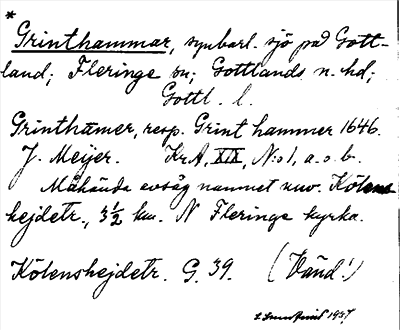 *
Grinthammar, synbarl. sjö på Gott-
land; Fleringe sn; Gottlands n. hd;
Gottl. l.
Grinthamer, resp. Grint hammer 1646.
J. Meijer. KrA, XIX, N:o 1, a.o.b.
Måhända avsåg namnet nuv. Kölens
hejdetr., 3½ km. N Fleringe kyrka.
Kölenshejdetr. G. 39. (Vänd!)
1937